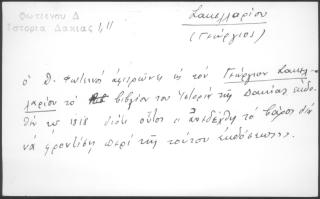 Φωτεινού Δ
Ἱστορία Δακίας I, II
Σακελλαρίου
(Γεώργιος)
ὁ Δ. Φωτεινὸς ἀφιερώνει εἰς τὸν Γεώργιον Σακελ-
λαρίον τὸ βιβλίον του Ἱστορία τῆς Δακίας ἐκδο-
θὲν τῷ 1818 διότι οὗτος ἀνεδέχθη τὸ βάρος διὰ
νὰ φροντίσῃ περὶ τῆς τούτου ἐκδόσεως.